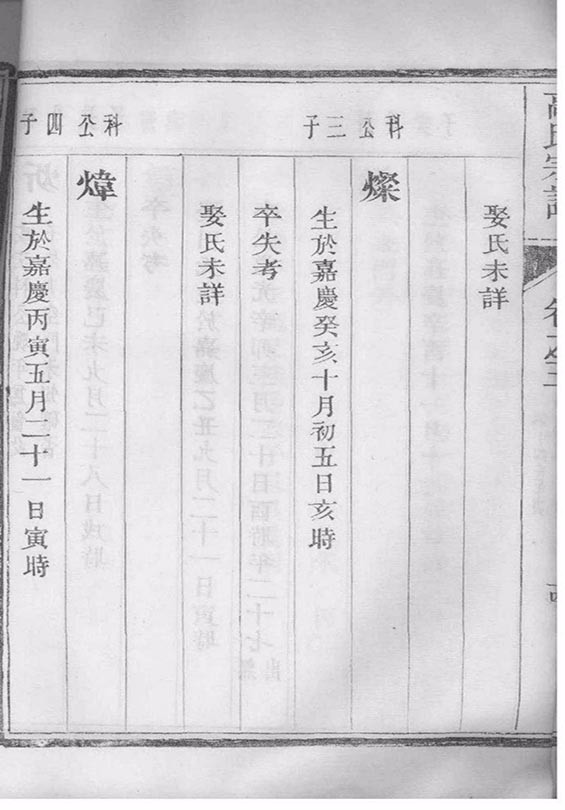 高氏宗譜
卷之三
娶氏未詳
科公三子
燦
生於嘉慶癸亥十月初五日亥時
卒失考
娶氏未詳
科公四子
煒
生於嘉慶丙寅五月二十一日寅時